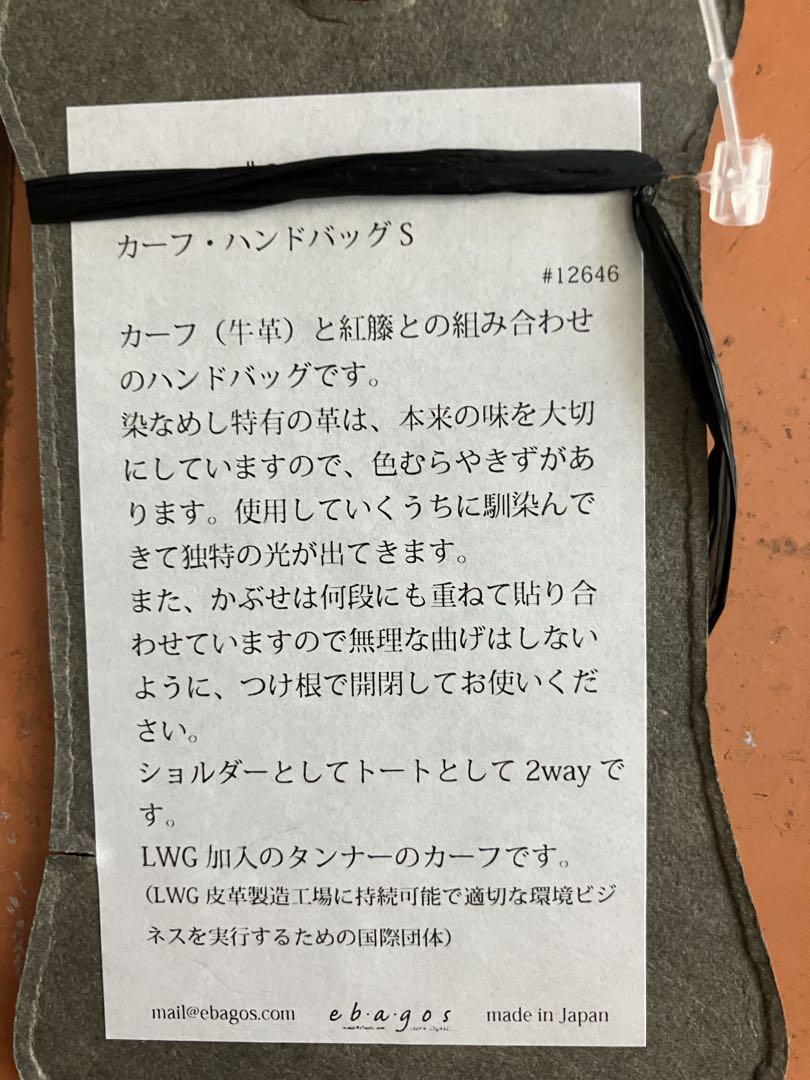 カーフ・ハンドバッグ S
#12646
カーフ（牛革）と紅籐との組み合わせ
のハンドバッグです。
染なめし特有の革は、本来の味を大切
にしていますので、色むらやきずがあ
ります。使用していくうちに馴染んで
きて独特の光が出てきます。
また、かぶせは何段にも重ねて貼り合
わせていますので無理な曲げはしない
ように、つけ根で開閉してお使いくだ
さい。
ショルダーとしてトートとして 2way で
す。
LWG 加入のタンナーのカーフです。
（LWG 皮革製造工場に持続可能で適切な環境ビジ
ネスを実行するための国際団体）
mail@ebagos.com e b・a・g o s made in Japan